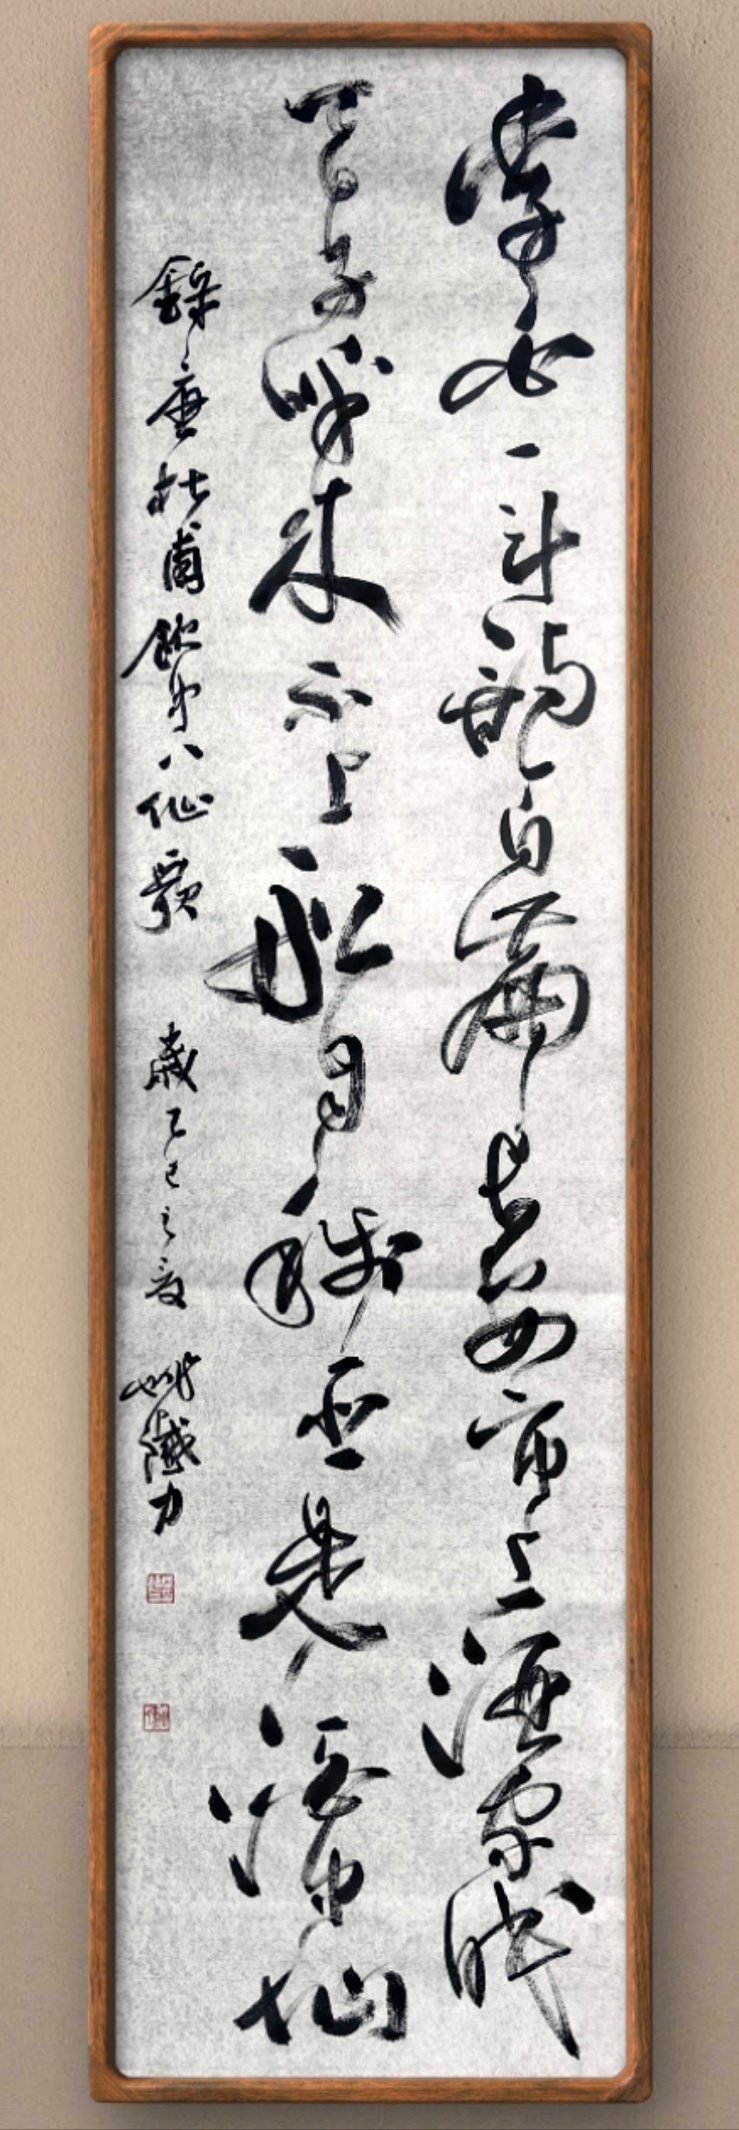 李白一斗詩百篇長安市上酒家眠
天子呼來不上船自稱臣是酒中仙
錄唐杜甫飲中八仙歌 歲乙巳之夏 姚鐵力